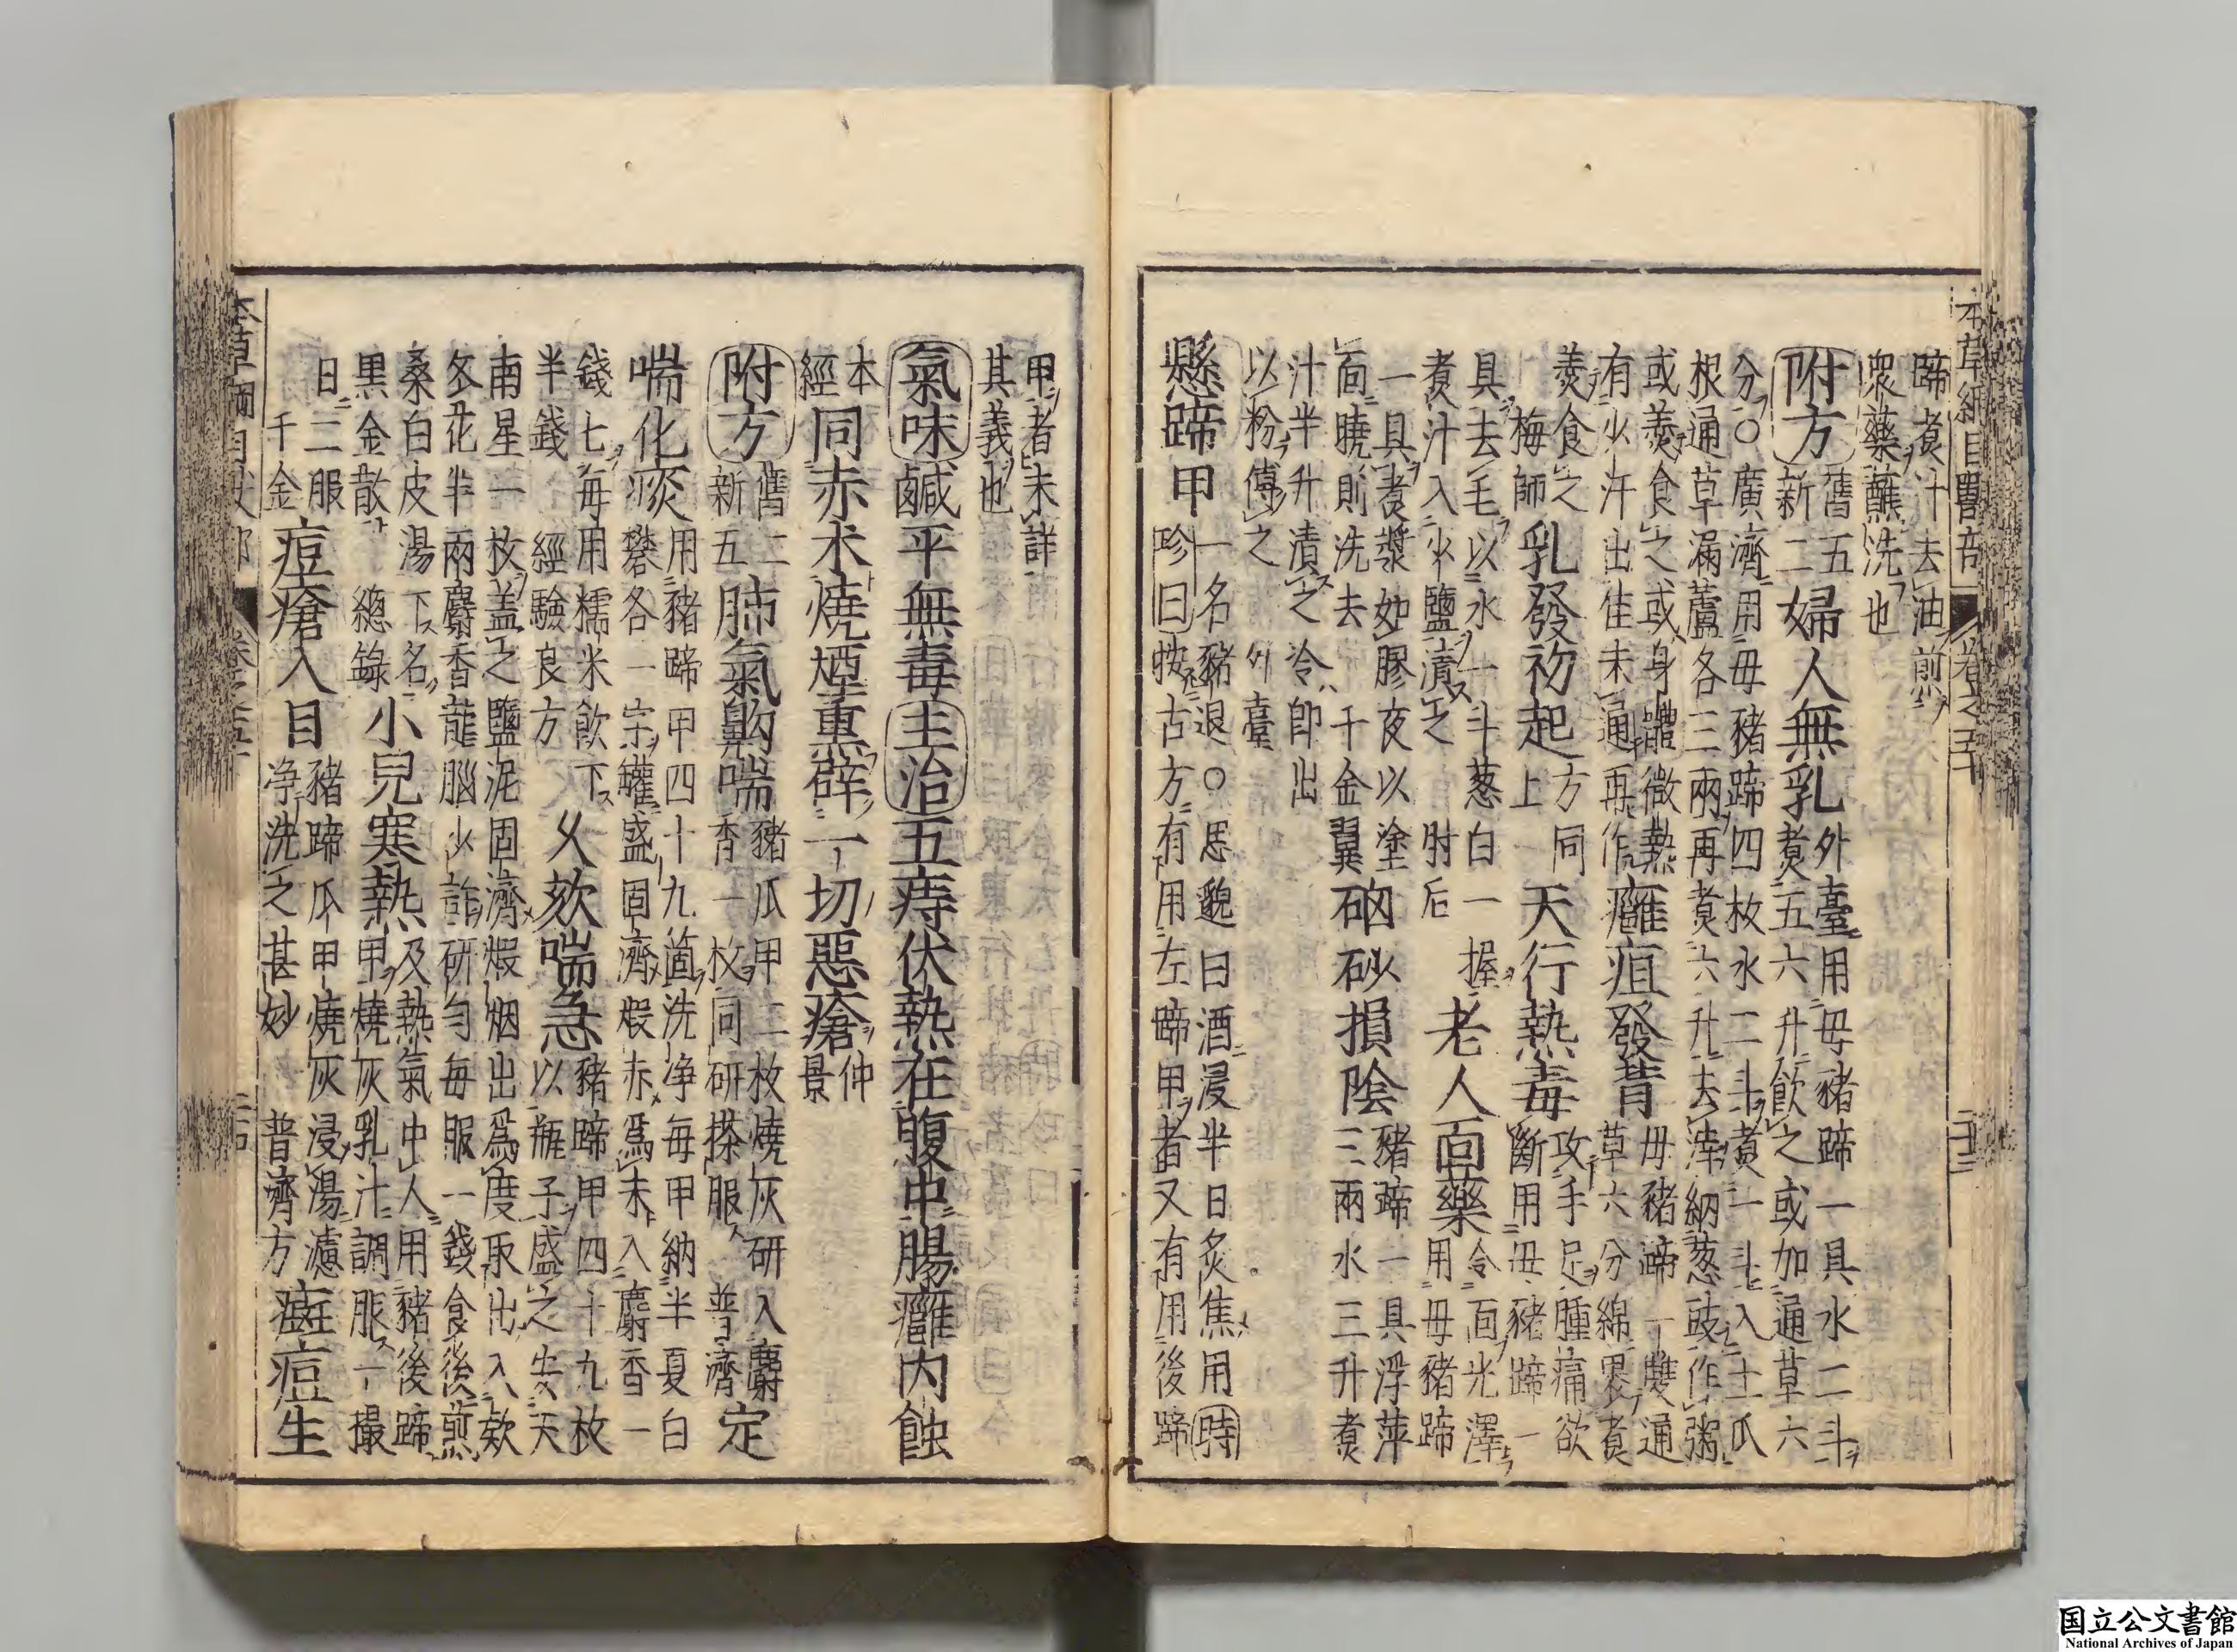 本草綱目獸部 卷之五十
蹄煑汁去油煎
衆藥蘸洗也
附方 舊五
新二
婦人無乳 外臺用母豬蹄一具水二斗
煑五六升飲之或加通草六
分○廣濟用母豬蹄四枚水二斗煑一斗入土瓜
根通草漏蘆各三兩再煑六升去滓納葱豉作粥
或羹食之或身體微熱
有少汗出佳未通再作
癰疽發背 母豬蹄一雙通
草六分綿裹煑
羹食之
梅師
乳發初起 方同
上
天行熱毒 攻手足腫痛欲
斷用母豬蹄一
具去毛以水一斗葱白一握
煑汁入少鹽漬之 肘后
老人面藥 令面光澤
用母豬蹄
一具煑漿如膠夜以塗
面曉則洗去 千金翼
硇砂損陰 豬蹄一具浮萍
三兩水三升煑
汁半升漬之冷即出
以粉傅之 外臺
懸蹄甲 一名豬退○思邈曰酒浸半日炙焦用時
珍曰按古方有用左蹄甲者又有用後蹄
甲者未詳
其義也
氣味鹹平無毒主治五痔伏熱在腹中腸癰内蝕
本
經
同赤木燒煙熏辟一切惡瘡 仲
景
附方 舊二
新五
肺氣齁喘 豬爪甲二枚燒灰研入麝
香一枚同研搽服 普濟
定
喘化痰 用豬蹄甲四十九箇洗净每甲納半夏白
礬各一字罐盛固濟煆赤爲末入麝香一
錢七每用糯米飲下
半錢 經驗良方
久欬喘急 豬蹄甲四十九枚
以瓶子盛之安天
南星一枚蓋之鹽泥固濟煆烟出爲度取出入欬
冬花半兩麝香龍腦少許研勻每服一錢食後煎
桑白皮湯下名
黒金散 總錄
小兒寒熱 及熱氣中人用豬後蹄
甲燒灰乳汁調服一撮
日二服
千金
痘瘡入目 豬蹄爪甲燒灰浸湯濾
净洗之甚妙 普濟方
癍痘生
国立公文書館
National Archives of Japan